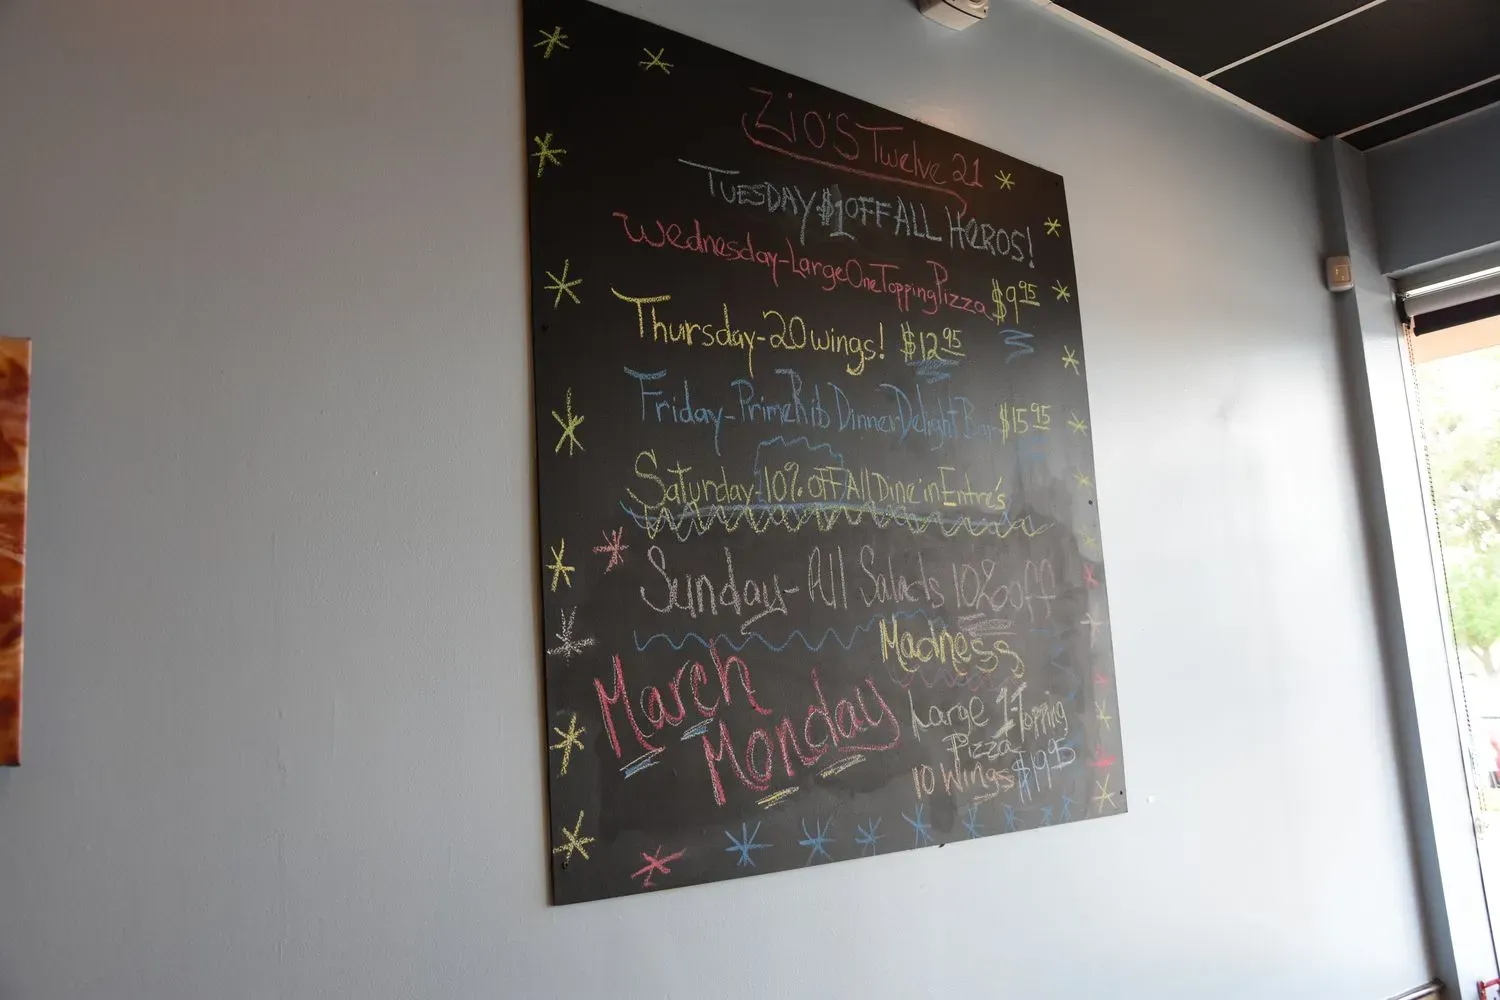 Zio's Twelve 21
TUESDAY $1 OFF ALL HEROS!
Wednesday - Large One Topping Pizza $9.95
Thursday - 20 wings! $12.95
Friday - Prime Rib Dinner Delight $15.95
Saturday - 10% off All Dine in Entre's
Sunday - All Salads 10% off
March Monday
Madness
Large 1-Topping
Pizza
10 Wings $19.95